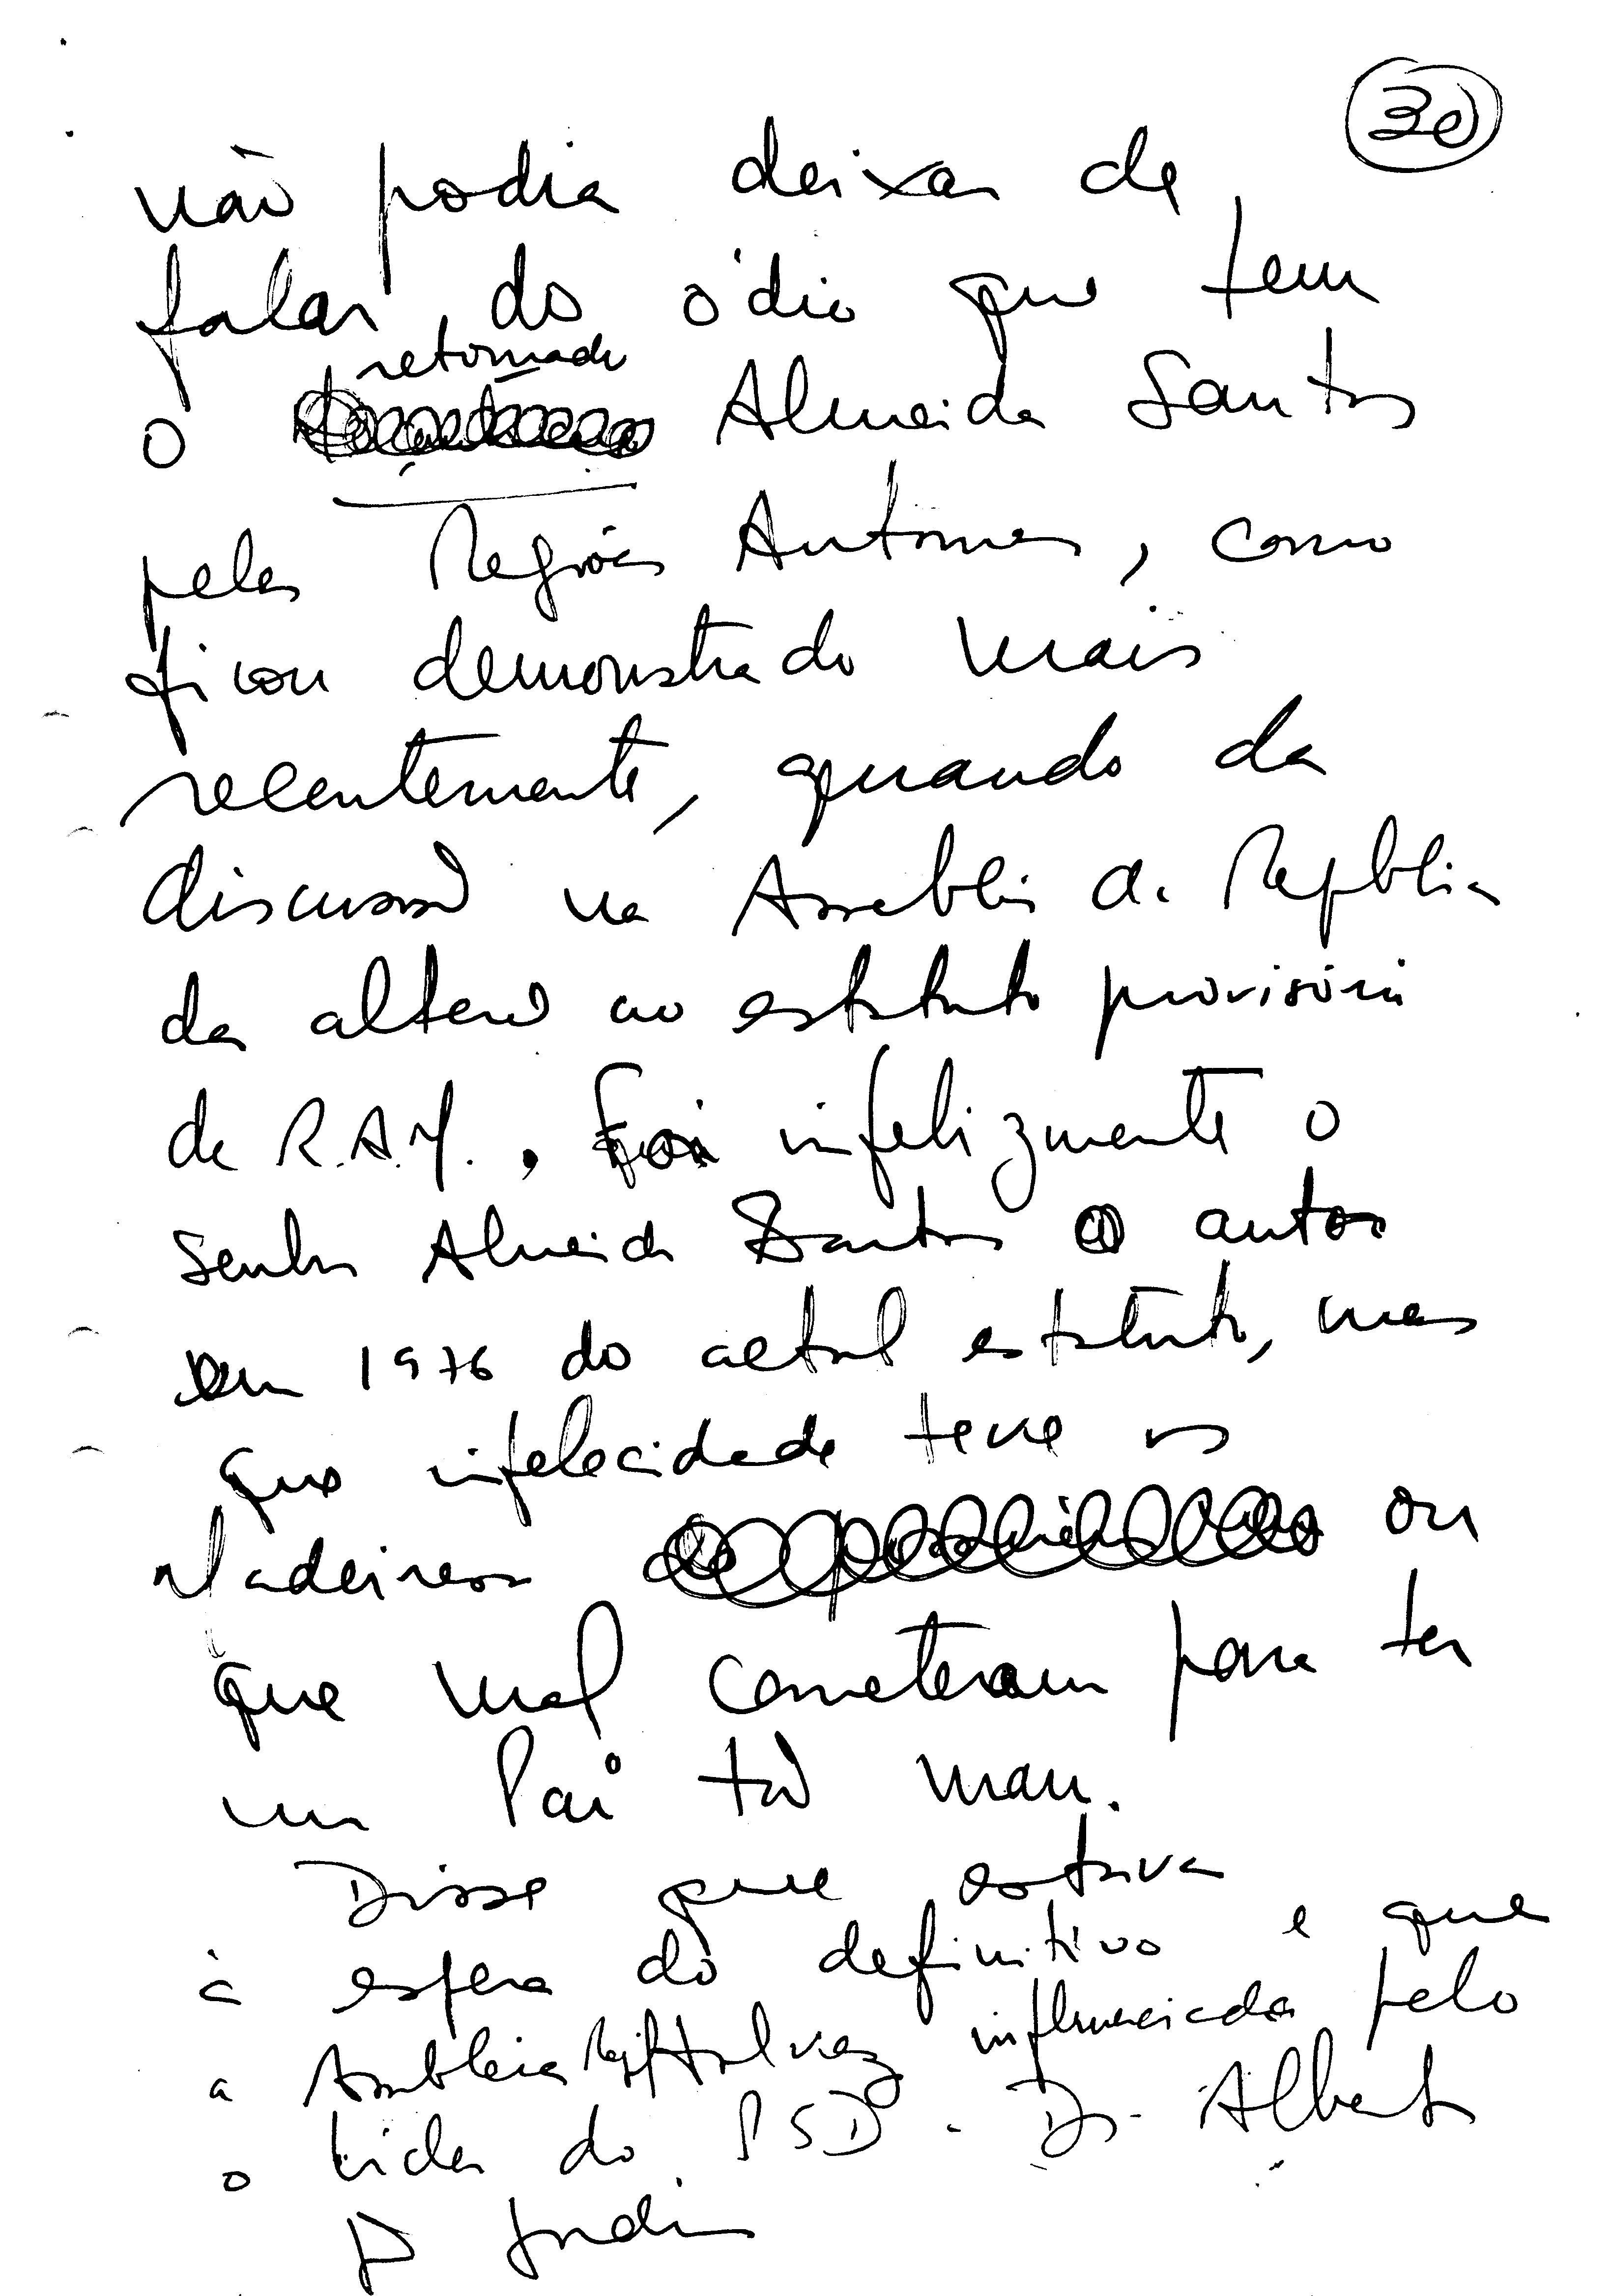 30
não podia deixar de
falar do ódio que tem
retornado
o Almeida Santos
pelas Regiões Autonomas, como
ficou demonstrado mais
recentemente, quando da
discussão na Assembleia da República
da alteração ao estatuto provisório
da R.A.M. . Foi infelizmente o
Senhor Almeida Santos o autor
em 1976 do actual estatuto, mas
que infelecidade teve os
Madeirenses ou
que mal cometeram para ter
um Pai tão mau.
Disse que estava
à espera do definitivo e que
a Assembleia Reg. talvez influenciada pelo
o lider do PSD - Dr. Alberto
J. Jardim